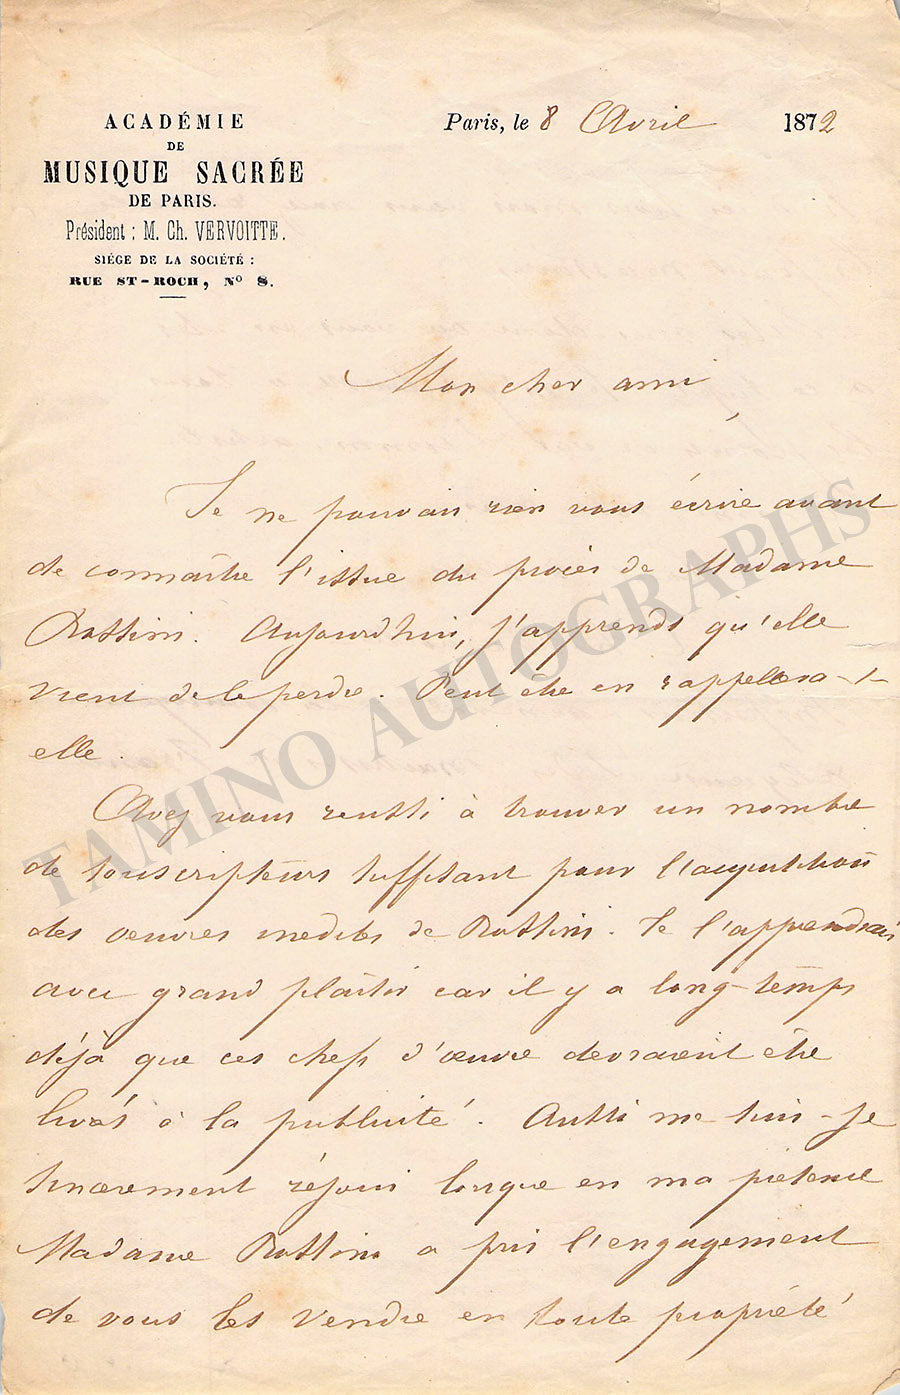 ACADÉMIE
DE
MUSIQUE SACRÉE
DE PARIS.
Président : M. Ch. VERVOITTE.
SIÉGE DE LA SOCIÉTÉ :
RUE ST-ROCH, Nº 8.
Paris, le 8 Avril 1872
Mon cher ami,
Je ne pouvais rien vous écrire avant
de connaître l'issue du procès de Madame
Rossini. Aujourd'hui, j'apprends qu'elle
vient de le perdre. Peut être en rappellera-t-
elle.
Avez vous reussi à trouver un nombre
de souscripteurs suffisant pour l'acquisition
des oeuvres inedites de Rossini. Je l'apprendrais
avec grand plaisir car il y a long-temps
déjà que ces chefs d'œuvre devraient être
livrés à la publicité. Aussi me suis-je
sincerement réjoui lorsque en ma présence
Madame Rossini a pris l'engagement
de vous les vendre en toute propriété
TAMINO AUTOGRAPHS